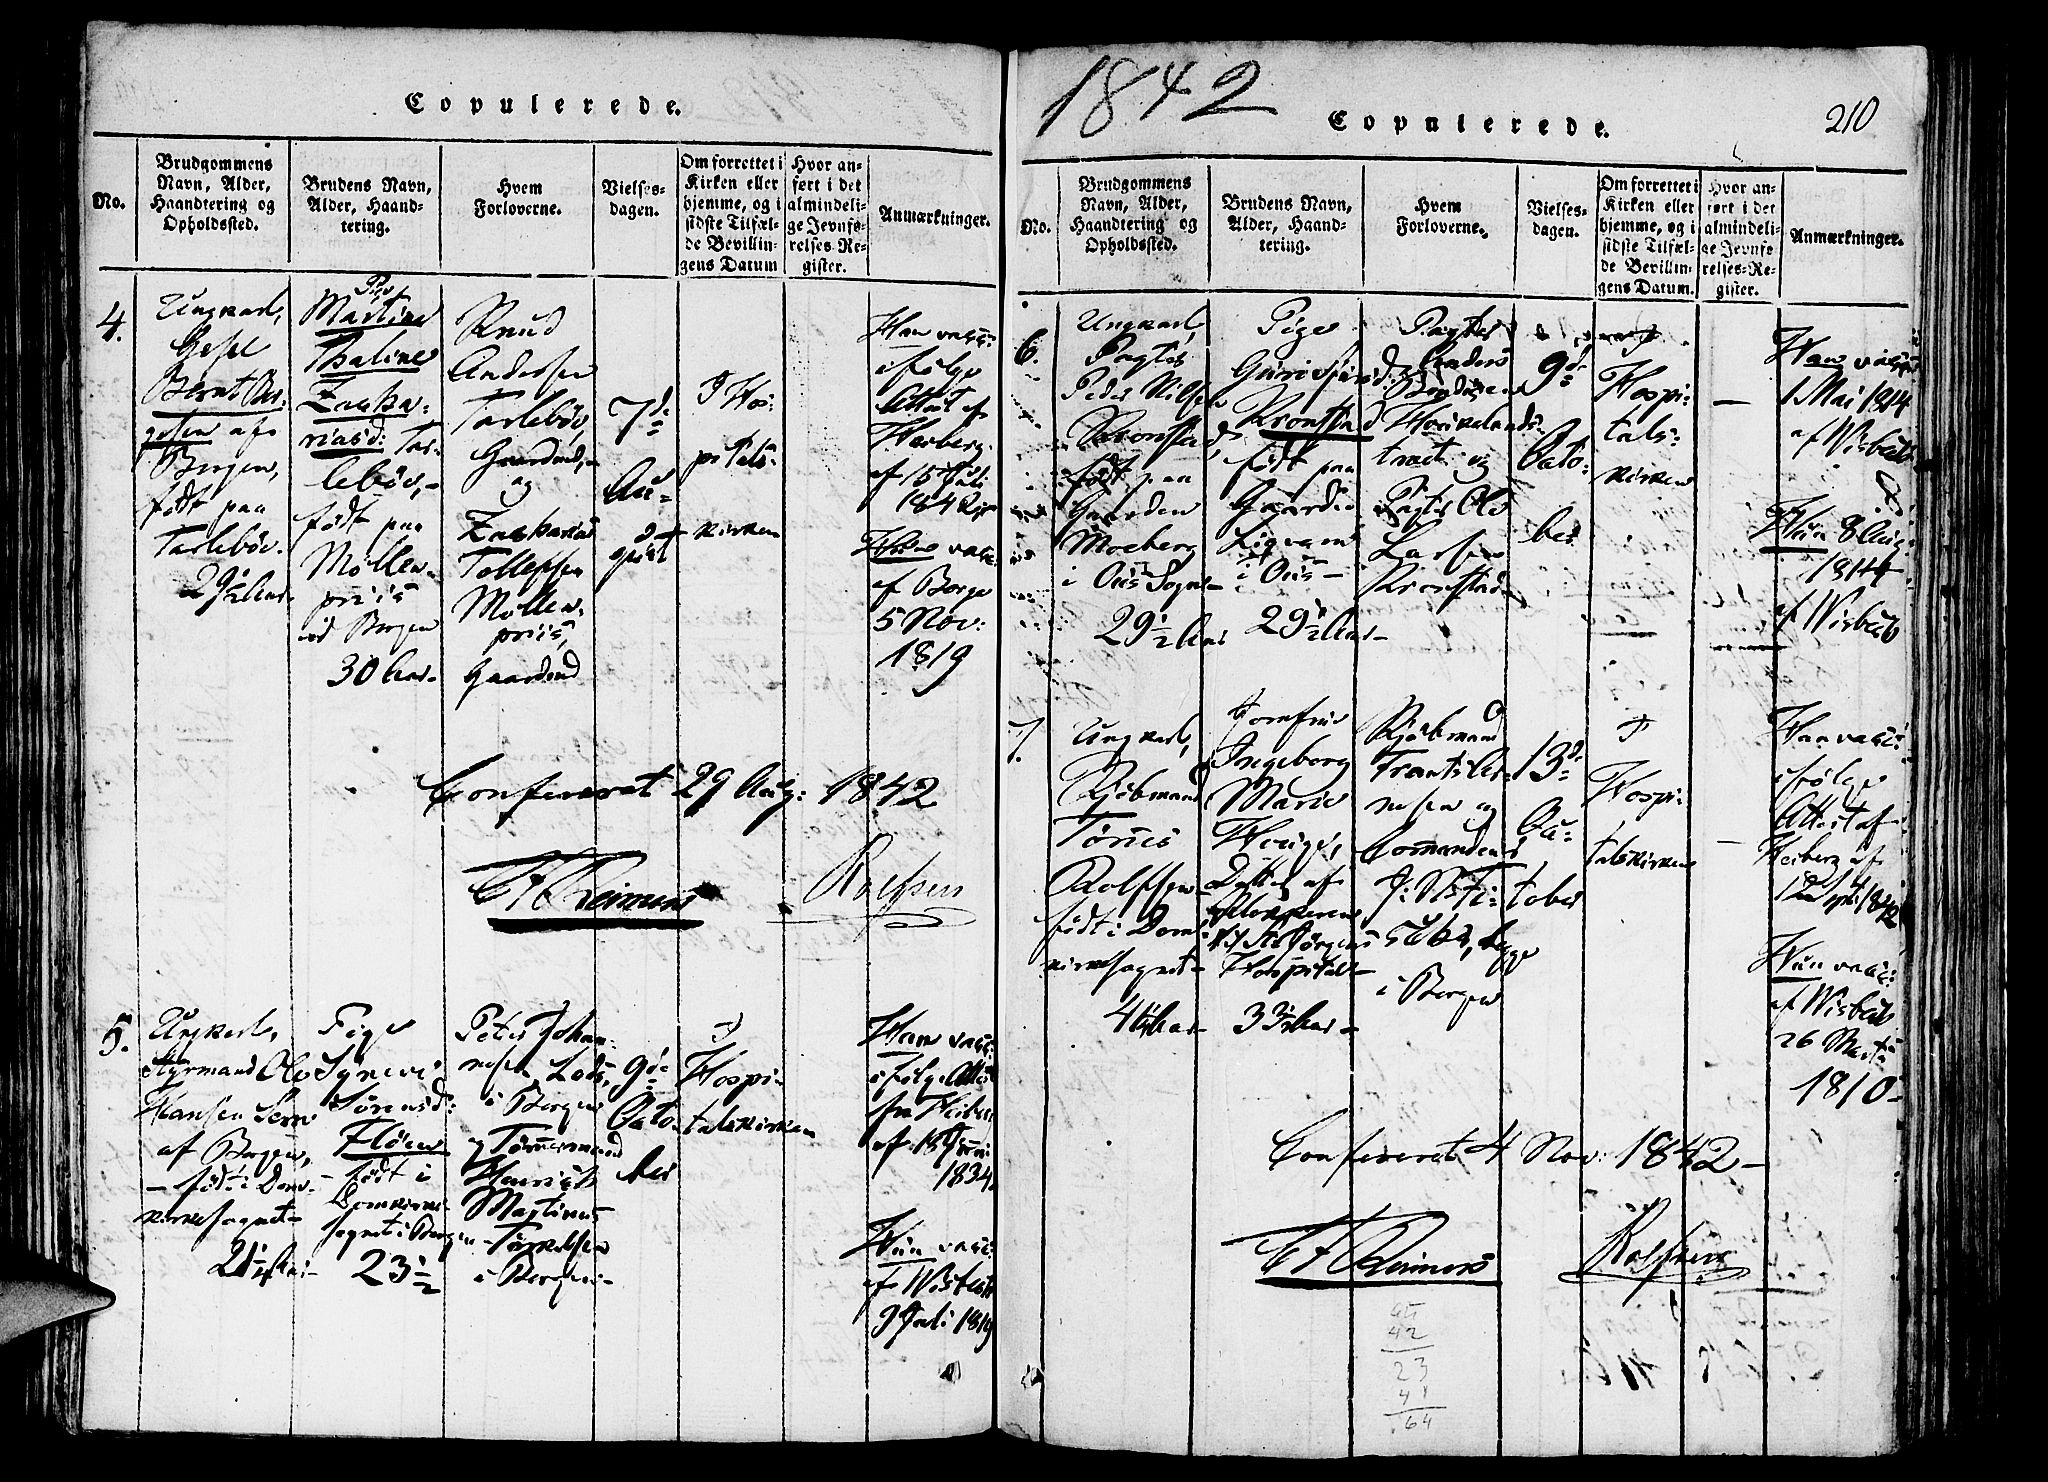 Copulerede.
No.
Brudgommens
Navn, Alder,
Haandtering og
Opholdssted.
Brudens Navn,
Alder, Haand-
tering.
Hvem
Forloverne.
Vielses-
dagen.
Om forrettet i
Kirken eller
hjemme, og i
sidste Tilfæl-
de Bevillin-
gens Datum
Hvor an-
ført i det
almindeli-
ge Jevnfø-
relses-Re-
gister.
Anmærkninger.
4.
Ungkarl,
Bernt
af
Bergen,
født paa
Tarlebøv.
29½ Aar.
Pige
Martine
Thaline
Zacha-
riasd: Tar-
lebøv,
født paa
Møllen-
priis
ved Bergen
30 Aar.
Knud
Andersen
Tarlebøv,
Gaardmd,
og
Zacharias
Tollefsen
Møllen-
priis,
Gaardmd
7de
Au-
gust
I Hos-
pitals-
kirken
Han vacc:
ifølge
Attest af
Heiberg
af 15 Juli
1842
Hun vacc:
af Borge
5 Nov:
1819
Confereret 29 Aug: 1842
Reimers
Rolfsen
5.
Ungkarl,
Styrmand Ole
Hansen
af Bergen,
født i Dom-
kirkesognet
Pige
Synevi
Sørensd:
født i
Domkirke-
sognet i Bergen
23½
Peter Johan-
nesen, Lods,
i Bergen
og Tømmermand
Henrich
Martinus
Torkelsen
i Bergen
9de
Octo-
ber
I
Hospi-
talskirken
Han vacc:
ifølge Attest
fra Heiberg
af 18 Juni
1834
Hun vacc:
af Wisbech
9 Juli 1819
1842
Copulerede.
210
No.
Brudgommens
Navn, Alder,
Haandtering og
Opholdssted.
Brudens Navn,
Alder, Haand-
tering.
Hvem
Forloverne.
Vielses-
dagen.
Om forrettet i
Kirken eller
hjemme, og i
sidste Tilfæl-
de Bevillin-
gens Datum.
Hvor an-
ført i det
almindeli-
ge Jevnfø-
relses-Re-
gister.
Anmærkninger.
6.
Ungkarl,
Pagter
Peder Nilsen
Kronstad,
født paa
Gaarden
Moeberg
i Ous Sogn
29½ Aar
Pige
Kronstad
født paa
Gaarden
i Ous
29½ Aar
Pagter
Anders
Haukelands-
træet og
Pagter Ole
Larsen
Kronstad
9de
Octo-
ber
Hospi-
tals-
kirken
Han vacc:
1 Mai 1814
af Wisbech
Hun 8 Aug:
1814
af Wisbech
7.
Ungkarl,
Kjøbmand
Tørres
Rolfsen
født i Dom-
kirkesognet
Jomfrue
Ingeborg
Marie
Datter af
Klokkeren
v/ St Jørgens
Hospital
Kjøbmand
og
begge
i Bergen
13de
Oc-
tober
I
Hospi-
talskirken
Han vacc:
ifølge
Attest af
Heiberg af
1 Sept: 1842
Hun vacc:
af Wisbech
26 Marts
1810
Confereret 4 Nov: 1842
Reimers
Rolfsen
42
23
64